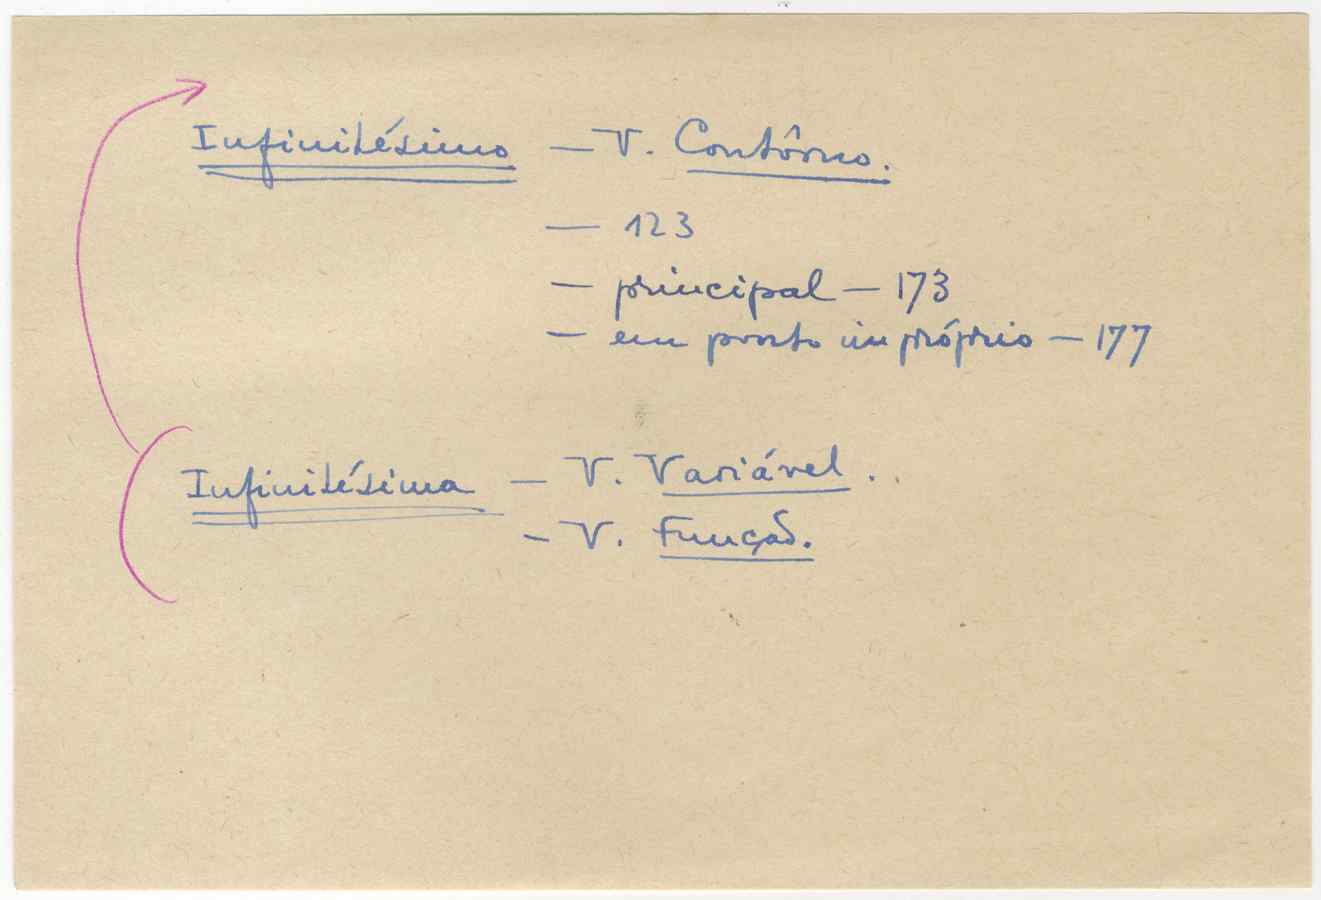 Infinitésimo — V. Contôrno.
— 123
— principal — 173
— em ponto impróprio — 177
Infinitésima — V. Variável.
— V. Função.